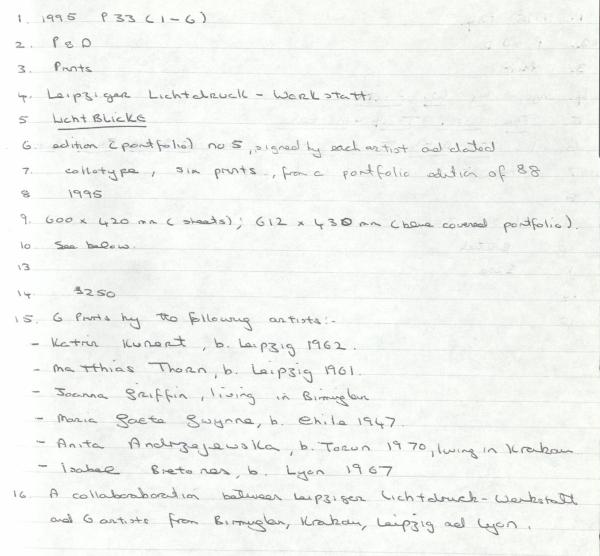 1. 1995 P 33 (1-6)
2. P & D
3. Prints
4. Leipziger Lichtdruck - Werkstatt.
5 Licht Blicke
6. edition (portfolio) no 5, signed by each artist and dated
7. collotype, six prints, from a portfolio edition of 88
8 1995
9. 600 x 420 mm (sheets); 612 x 430 mm (blue covered portfolio).
10 See below.
13
14 $250
15. 6 Prints by the following artists:-
- Katrin Kunert, b. Leipzig 1962.
- Matthias Thorn, b. Leipzig 1961.
- Joanna Griffin, living in Birmingham
- Maria Gaete Gwynne, b. Chile 1947.
- Anita Andrzejewska, b. Torun 1970, living in Krakow
- Isabel Bretones, b. Lyon 1967
16. A collaboration between Leipziger Lichtdruck-Werkstatt
and 6 artists from Birmingham, Krakow, Leipzig and Lyon.